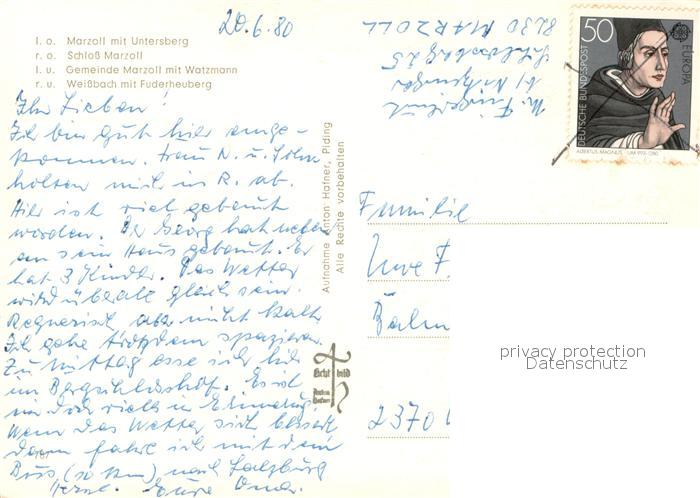 20.6.80
l. o. Marzoll mit Untersberg
r. o. Schloß Marzoll
l. u. Gemeinde Marzoll mit Watzmann
r. u. Weißbach mit Fuderheuberg
Ihr Lieben!
Ich bin gut hier ange-
kommen. Frau N. u. Sohn
holten mich in R. ab.
Hier ist viel gebaut
worden. Der Georg hat neben
an sein Haus gebaut. Er
hat 3 Kinder. Das Wetter
wird überall gleich sein.
Regnerisch aber nicht kalt.
Ich gehe trotzdem spazieren.
Zu Mittag esse ich hier
im Es ist
mir doch vieles in Erinnerung.
Wenn das Wetter sich bessert
dann fahre ich mit dem
Bus (10 km) nach Salzburg
Herzl. Eure Oma.
Aufnahme Anton Hafner, Piding
Alle Rechte vorbehalten
Echt Bild
Anton Hafner
8230 MARZOLL
50
DEUTSCHE BUNDESPOST
EUROPA
ALBERTUS MAGNUS UM 1193-1280
Familie
Uwe F.
2370
privacy protection
Datenschutz